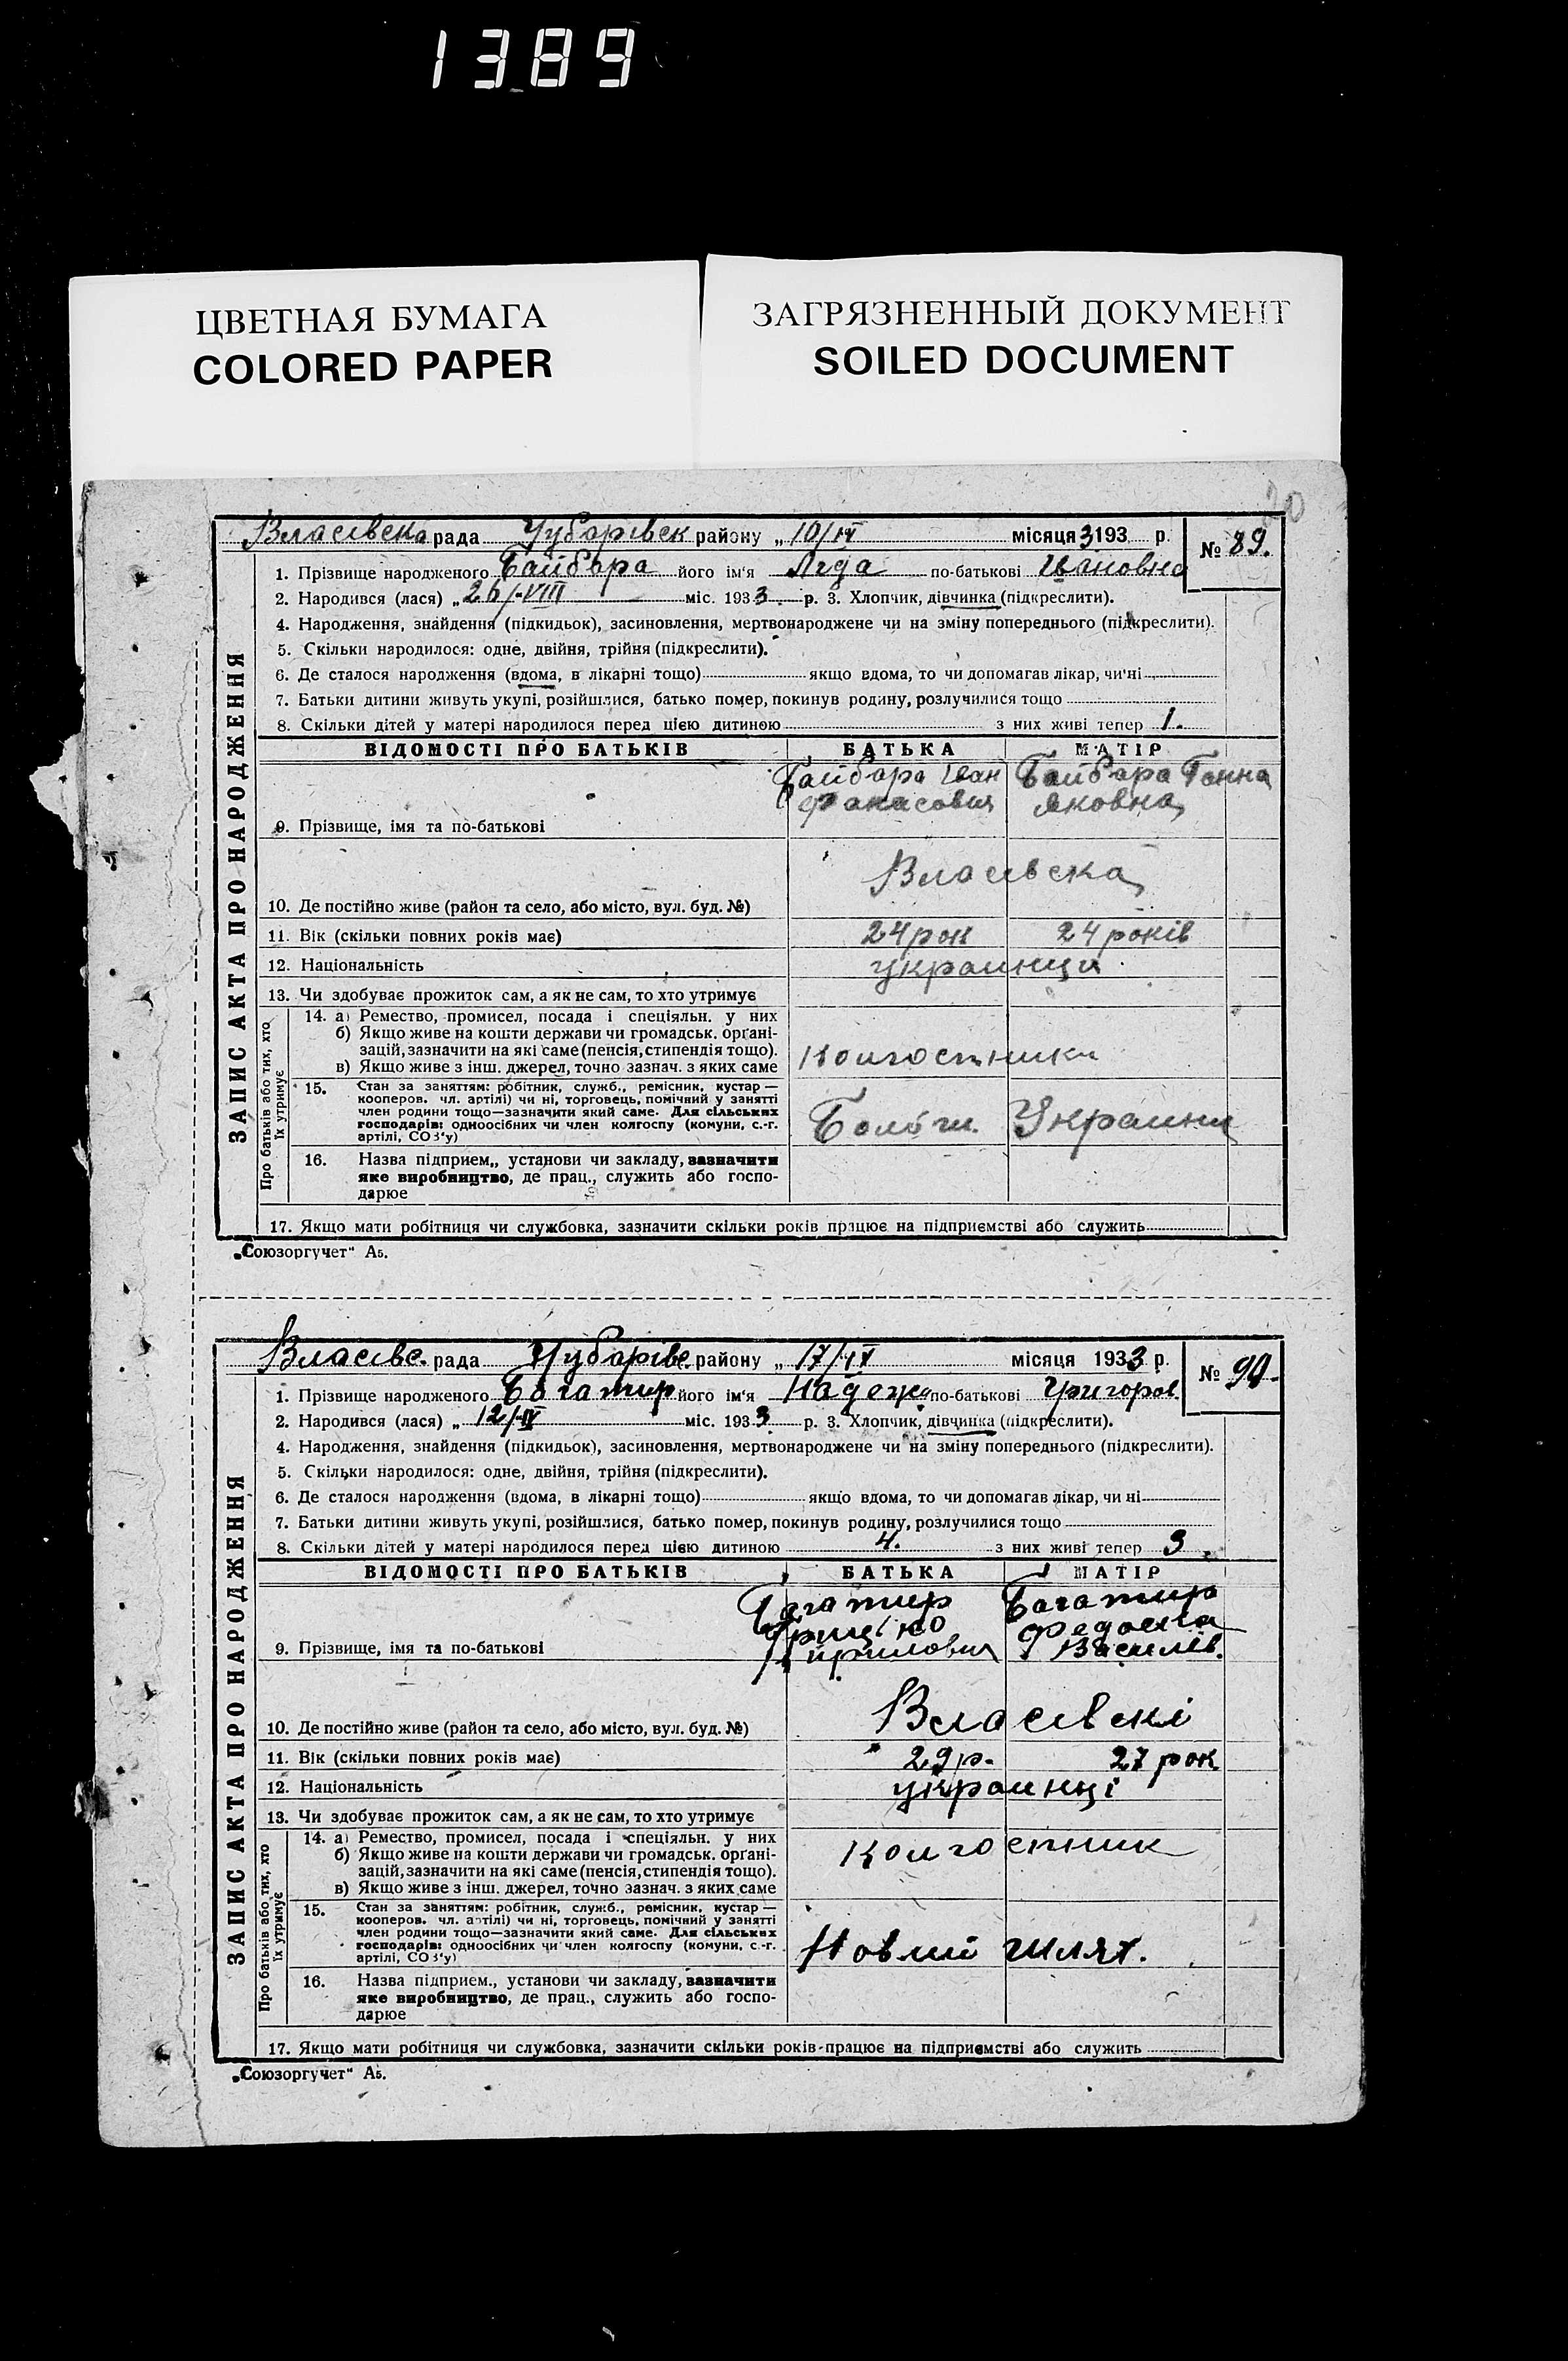 1389
ЦВЕТНАЯ БУМАГА
COLORED PAPER
ЗАГРЯЗНЕННЫЙ ДОКУМЕНТ
SOILED DOCUMENT
20
Власівська рада Чубарівськ району „ 10/IX місяця 3193 р. № 89.
ЗАПИС АКТА ПРО НАРОДЖЕННЯ
1. Прізвище народженого Байбара його ім'я Ліда по-батькові Івановна
2. Народився (лася) „ 26/VIII міс. 193 3 р. 3. Хлопчик, дівчинка (підкреслити).
4. Народження, знайдення (підкидьок), засиновлення, мертвонароджене чи на зміну попереднього (підкреслити).
5. Скільки народилося: одне, двійня, трійня (підкреслити).
6. Де сталося народження (вдома, в лікарні тощо) якщо вдома, то чи допомагав лікар, чи ні
7. Батьки дитини живуть укупі, розійшлися, батько помер, покинув родину, розлучилися тощо
8. Скільки дітей у матері народилося перед цією дитиною з них живі тепер 1.
ВІДОМОСТІ ПРО БАТЬКІВ БАТЬКА МАТІР
Байбара Іван Байбара Ганна
Фанасович Яковна
9. Прізвище, імя та по-батькові
Власівска
10. Де постійно живе (район та село, або місто, вул. буд. №)
11. Вік (скільки повних років має) 24 рок 24 років
12. Національність украинци
13. Чи здобуває прожиток сам, а як не сам, то хто утримує
Про батьків або тих, хто їх утримує
14. а) Ремество, промисел, посада і спеціяльн. у них
б) Якщо живе на кошти держави чи громадськ. органі-
зацій, зазначити на які саме (пенсія, стипендія тощо).
в) Якщо живе з інш. джерел, точно зазнач. з яких саме
Колгостники
15. Стан за заняттям: робітник, служб., ремісник, кустар —
кооперов. чл. артілі) чи ні, торговець, помічний у занятті
член родини тощо—зазначити який саме. Для сільських
господарів: одноосібних чи член колгоспу (комуни, с.-г.
артілі, СОЗ'у)
Украини
16. Назва підприєм„ установи чи закладу, зазначити
яке виробництво, де прац., служить або госпо-
дарює
17. Якщо мати робітниця чи службовка, зазначити скільки років працює на підприємстві або служить
„Союзоргучет" А5.
Власівс. рада Чубарівс. району „ 17/IX місяця 1933 р. № 90.
ЗАПИС АКТА ПРО НАРОДЖЕННЯ
1. Прізвище народженого Богатир його ім'я Надежа по-батькові Григоров.
2. Народився (лася) „ 12/IX міс. 193 3 р. 3. Хлопчик, дівчинка (підкреслити).
4. Народження, знайдення (підкидьок), засиновлення, мертвонароджене чи на зміну попереднього (підкреслити).
5. Скільки народилося: одне, двійня, трійня (підкреслити).
6. Де сталося народження (вдома, в лікарні тощо) якщо вдома, то чи допомагав лікар, чи ні
7. Батьки дитини живуть укупі, розійшлися, батько помер, покинув родину, розлучилися тощо
8. Скільки дітей у матері народилося перед цією дитиною 4. з них живі тепер 3
ВІДОМОСТІ ПРО БАТЬКІВ БАТЬКА МАТІР
Багатир Багатир
Грицько Федоска
Кирилович Василів.
9. Прізвище, імя та по-батькові
Власівскі
10. Де постійно живе (район та село, або місто, вул. буд. №)
11. Вік (скільки повних років має) 29 р. 27 рок
12. Національність украинці
13. Чи здобуває прожиток сам, а як не сам, то хто утримує
Про батьків або тих, хто їх утримує
14. а) Ремество, промисел, посада і спеціяльн. у них
б) Якщо живе на кошти держави чи громадськ. органі-
зацій, зазначити на які саме (пенсія, стипендія тощо).
в) Якщо живе з інш. джерел, точно зазнач. з яких саме
Колгостник
15. Стан за заняттям: робітник, служб., ремісник, кустар —
кооперов. чл. артілі) чи ні, торговець, помічний у занятті
член родини тощо—зазначити який саме. Для сільських
господарів: одноосібних чи член колгоспу (комуни, с.-г.
артілі, СОЗ'у)
Новий шлях.
16. Назва підприєм., установи чи закладу, зазначити
яке виробництво, де прац., служить або госпо-
дарює
17. Якщо мати робітниця чи службовка, зазначити скільки років працює на підприємстві або служить
„Союзоргучет" А5.